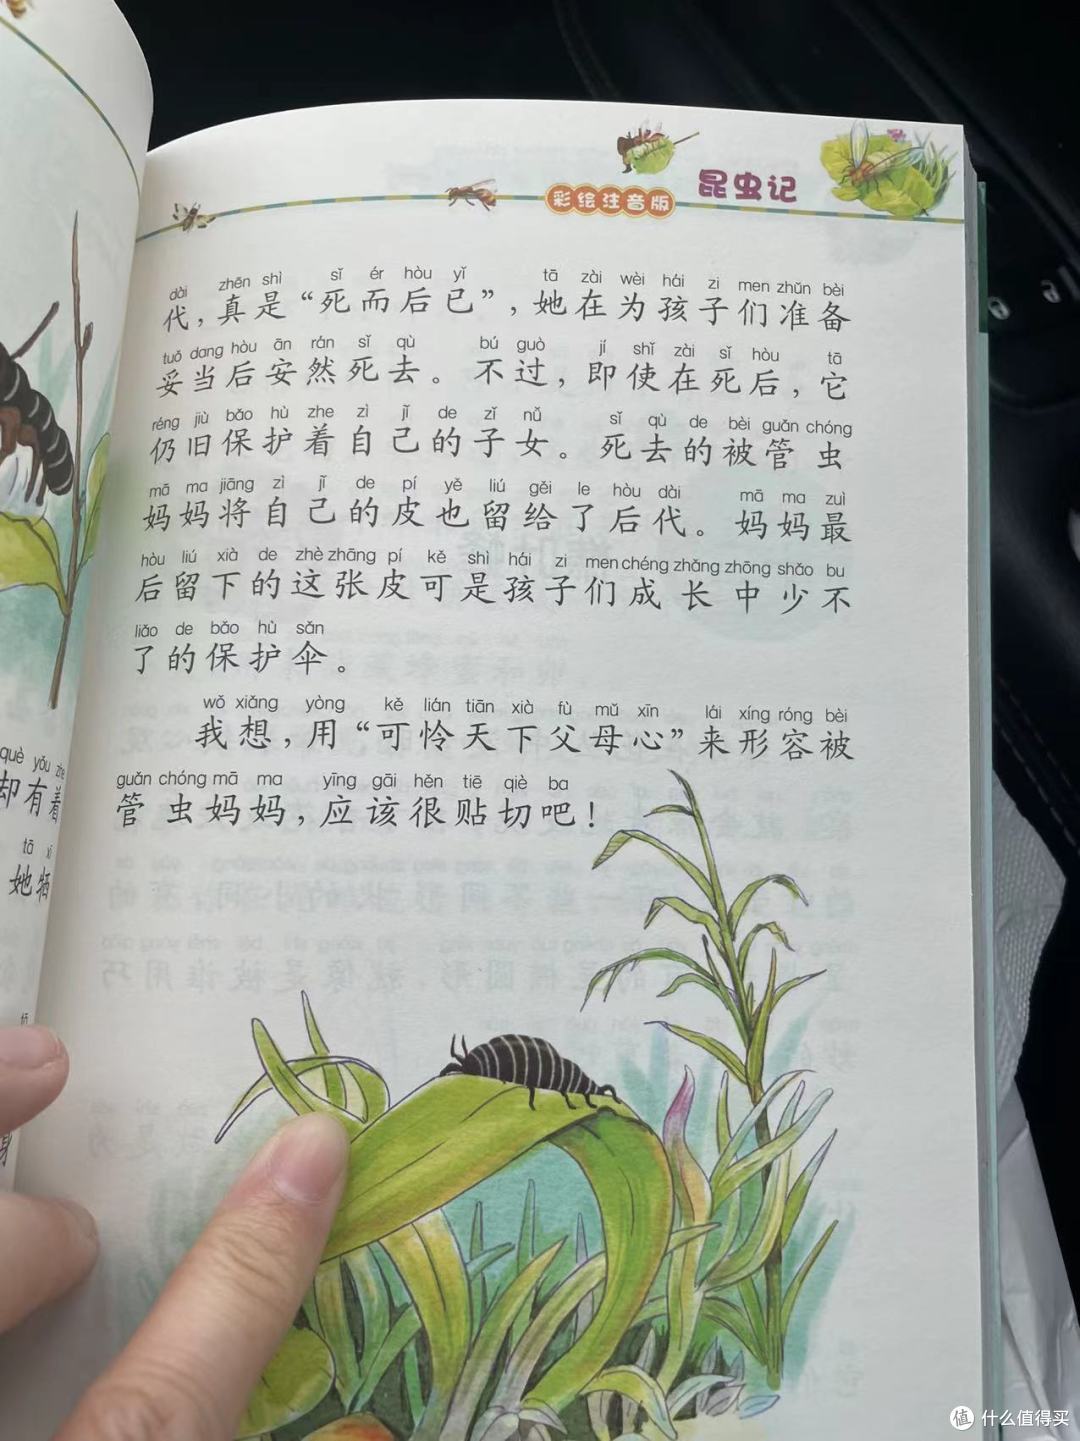 彩绘注音版 昆虫记
dài zhēn shì sǐ ér hòu yǐ tā zài wèi hái zi men zhǔn bèi
代，真是“死而后已”，她在为孩子们准备
tuǒ dang hòu ān rán sǐ qù bú guò jí shǐ zài sǐ hòu tā
妥当后安然死去。不过，即使在死后，它
réng jiù bǎo hù zhe zì jǐ de zǐ nǚ sǐ qù de bèi guǎn chóng
仍旧保护着自己的子女。死去的被管虫
mā ma jiāng zì jǐ de pí yě liú gěi le hòu dài mā ma zuì
妈妈将自己的皮也留给了后代。妈妈最
hòu liú xià de zhè zhāng pí kě shì hái zi men chéng zhǎng zhōng shǎo bu
后留下的这张皮可是孩子们成长中少不
liǎo de bǎo hù sǎn
了的保护伞。
wǒ xiǎng yòng kě lián tiān xià fù mǔ xīn lái xíng róng bèi
我想，用“可怜天下父母心”来形容被
guǎn chóng mā ma yīng gāi hěn tiē qiè ba
管虫妈妈，应该很贴切吧！
què yǒu zhe
却有着
tā xī
她牺
身
值 什么值得买